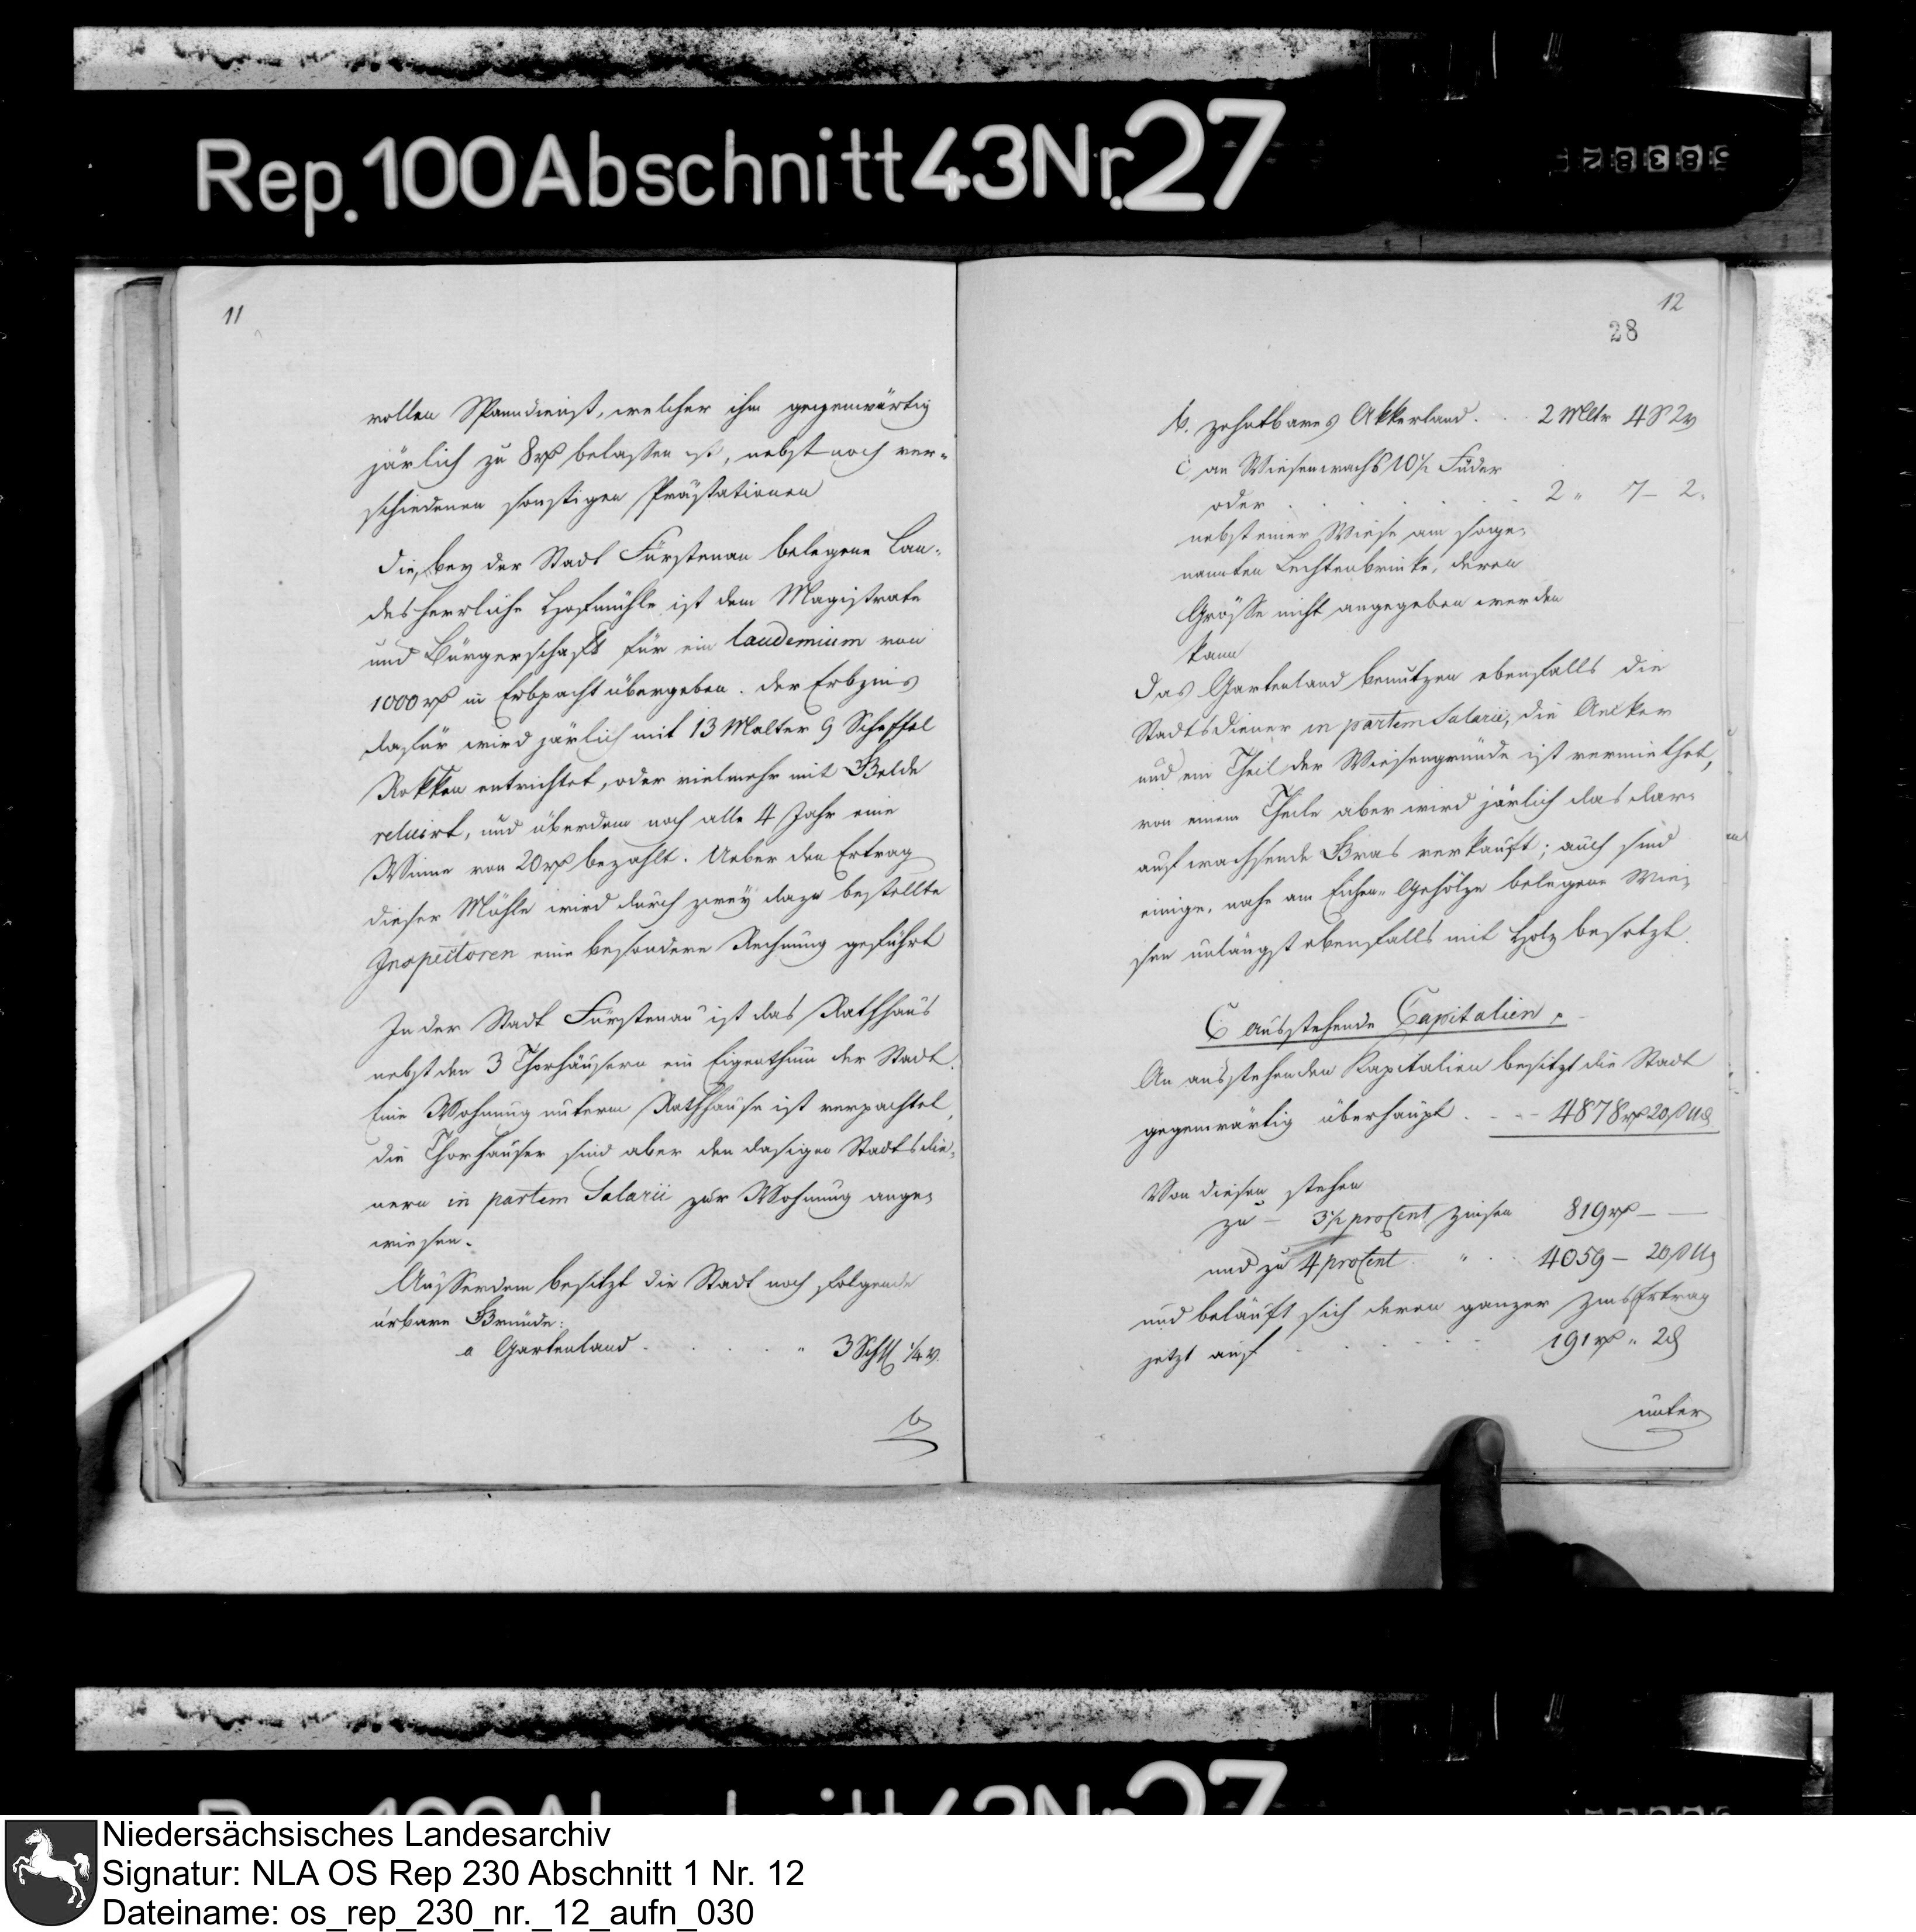 Rep. 100 Abschnitt 43 Nr. 27
11
vollen Spanndienst, welcher ihm gegenwärtig
järlich zu 8 rp belassen ist, nebst noch ver-
schiedenen sonstigen Prästationen
Die, bey der Stadt Fürstenau belegene Lan-
desherrliche Hofmühle, ist dem Magistrate
und Bürgerschaft für ein laudemium von
1000 rp in Erbpacht übergeben. Der Erbzins
dafür wird järlich mit 13 Malter 9 Scheffel
Rokken entrichtet, oder vielmehr mit Gelde
reluirt, und überdem noch alle 4 Jahr eine
Winne von 20 rp bezahlt. Ueber den Ertrag
dieser Mühle wird durch zwey dazu bestellte
Inspectoren eine besondere Rechnung geführt
In der Stadt Fürstenau ist das Rathhaus
nebst den 3 Thorhäusern ein Eigenthum der Stadt.
Eine Wohnung unterm Rathhause ist verpachtet,
die Thorhäuser sind aber den dasigen Stadtsdie-
nern in partem Salarii zur Wohnung ange-
wiesen.
Ausserdem besitzt die Stadt noch folgende
urbare Gründe:
a Gartenland . . . . " 3 Schfl 1/4 v.
b
12
28
b. zehntbares Akkerland . . . 2 Mltr 4 S 2 v
c, an Wiesenwachs 10 1/2 Fuder
oder . . . . . 2 " 7 – 2 "
nebst einer Wiese am soge-
nannten Lechtenbrinke, deren
Grösse nicht angegeben werden
kann
Das Gartenland benutzen ebenfalls die
Stadtsdiener in partem Salarii, die Aecker
und ein Theil der Wiesengründe ist vermiethet,
von einem Theile aber wird järlich das dar-
auf wachsende Gras verkauft; auch sind
einige, nahe am Eichen-Gehölze belegene Wie-
sen unlängst ebenfalls mit Holz besetzt.
C Ausstehende Capitalien.
An ausstehenden Kapitalien besitzt die Stadt
gegenwärtig überhaupt . - - - 4878 rp 20 ß 11 d
Von diesen stehen
zu – 3 1/2 proCent Zinsen 819 rp – –
und zu 4 proCent " . . 4059 – 20 ß 11 d
und beläuft sich deren ganzer Zins Ertrag
jetzt auf . . . . . 191 rp " 2 d
unter
Niedersächsisches Landesarchiv
Signatur: NLA OS Rep 230 Abschnitt 1 Nr. 12
Dateiname: os_rep_230_nr._12_aufn_030